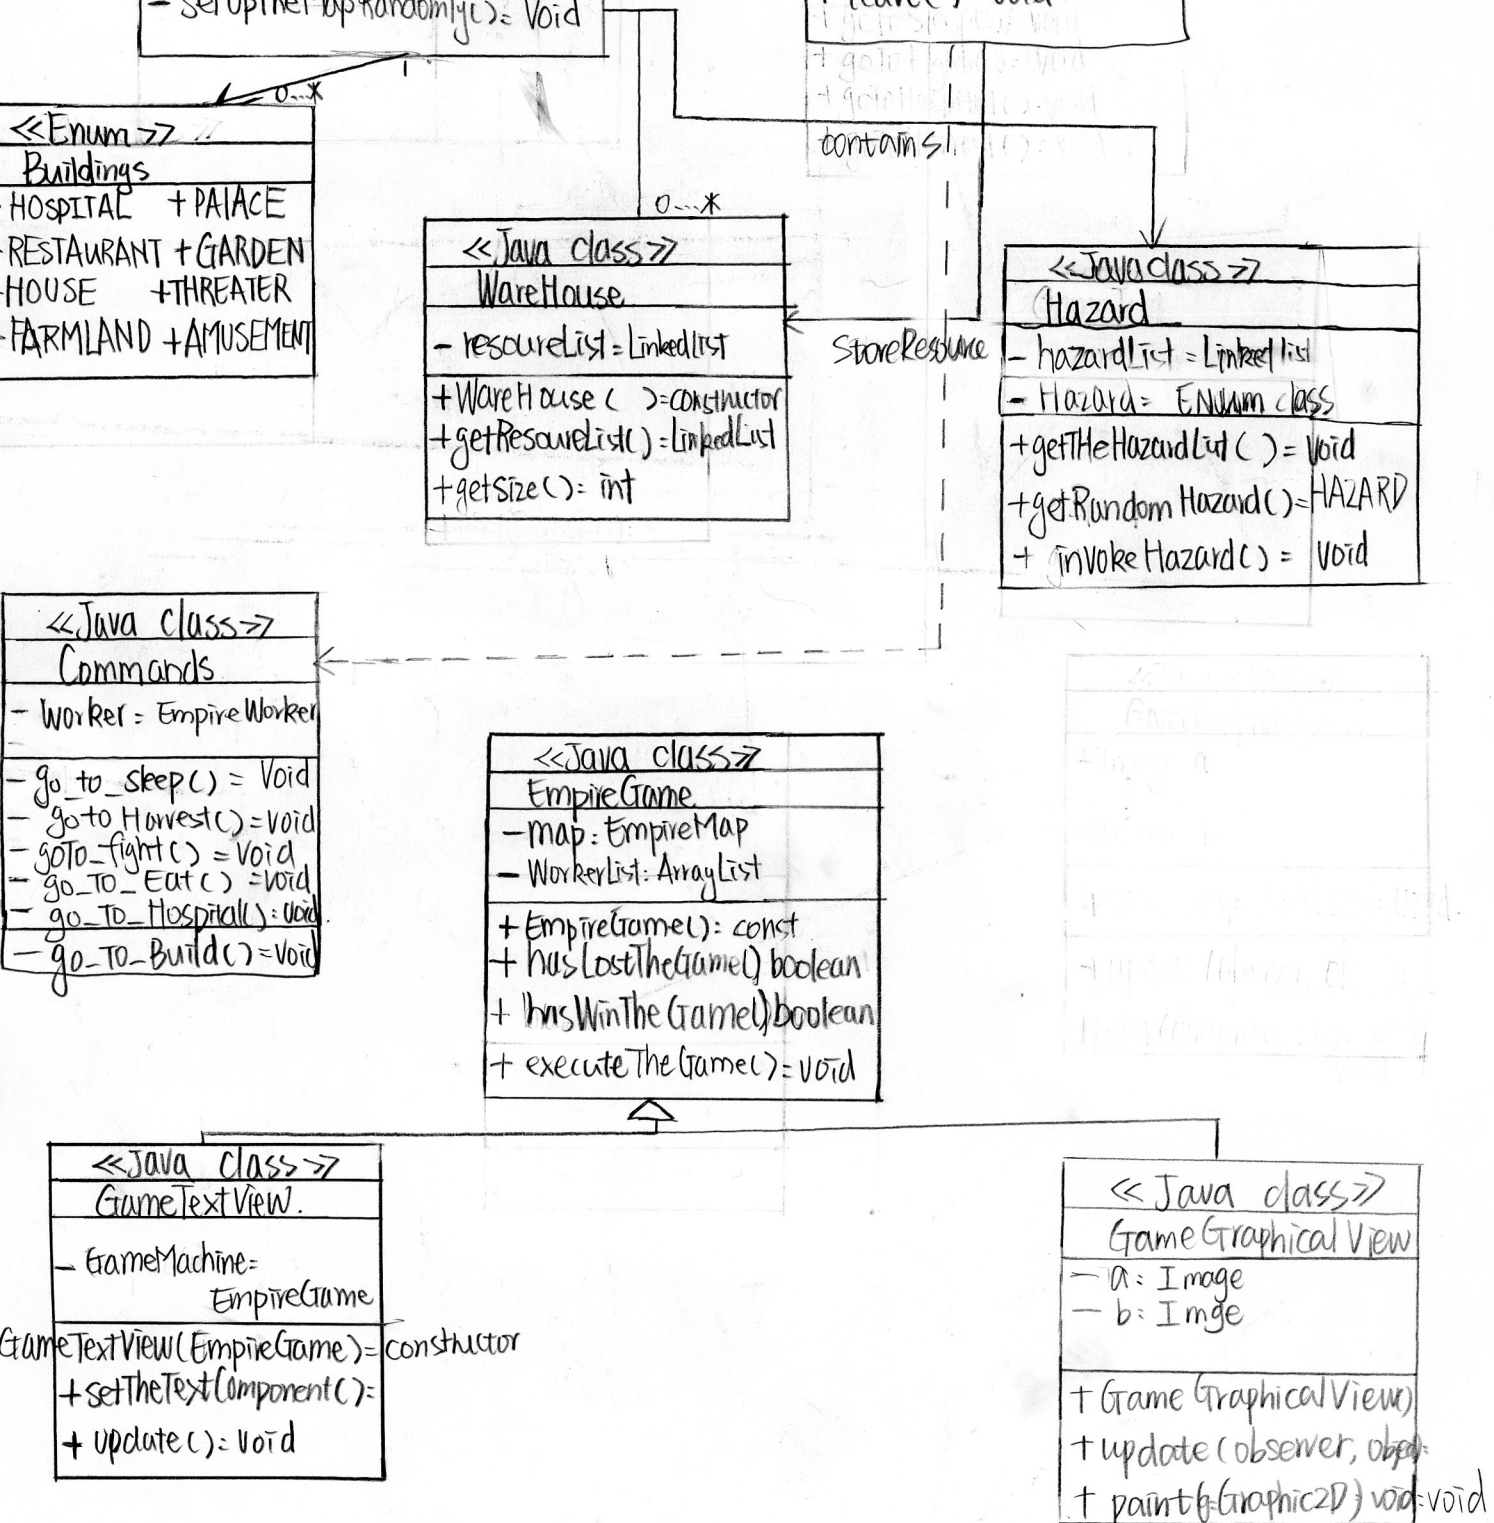 - setUpTheMapRandomly()= Void
1
0...*
<<Enum>>
Buildings
HOSPITAL + PAlACE
RESTAURANT + GARDEN
HOUSE +THREATER
FARMLAND +AMUSEMENT
contains
1
0...*
<<Java class>>
WareHouse
- resoureList=LinkedList
+WareHouse( )=constructor
+getResoureList()=LinkedList
+getSize()= int
StoreResource
<<Javaclass>>
Hazard
- hazardList = Linkedlist
- Hazard= ENUm class
+getTHeHazardList( )= Void
+getRandomHazard()=HAZARD
+ invokeHazard()= Void
<<Java class>>
Commands
- Worker= EmpireWorker
- go_to_sleep() = Void
- goto Harvest()=void
- goTo_fight() =Void
- go_To_Eat() =void
- go_To_Hospital()=void.
- go_To_Build()=Void
<<Java class>>
EmpireGame
-map: EmpireMap
- WorkerList: ArrayList
+ EmpireGame(): const
+ hasLostTheGame() boolean
+ hasWinTheGame()boolean
+ executeTheGame()=void
<<Java class>>
GameTextView.
- GameMachine=
EmpireGame
GameTextView(EmpireGame)=constructor
+setTheTextComponent()=
+ update()=void
<<Java class>>
GameGraphicalView
- a: Image
- b: Imge
+GameGraphicalView()
+update(observer,
+ paint(g:Graphic2D) void=void